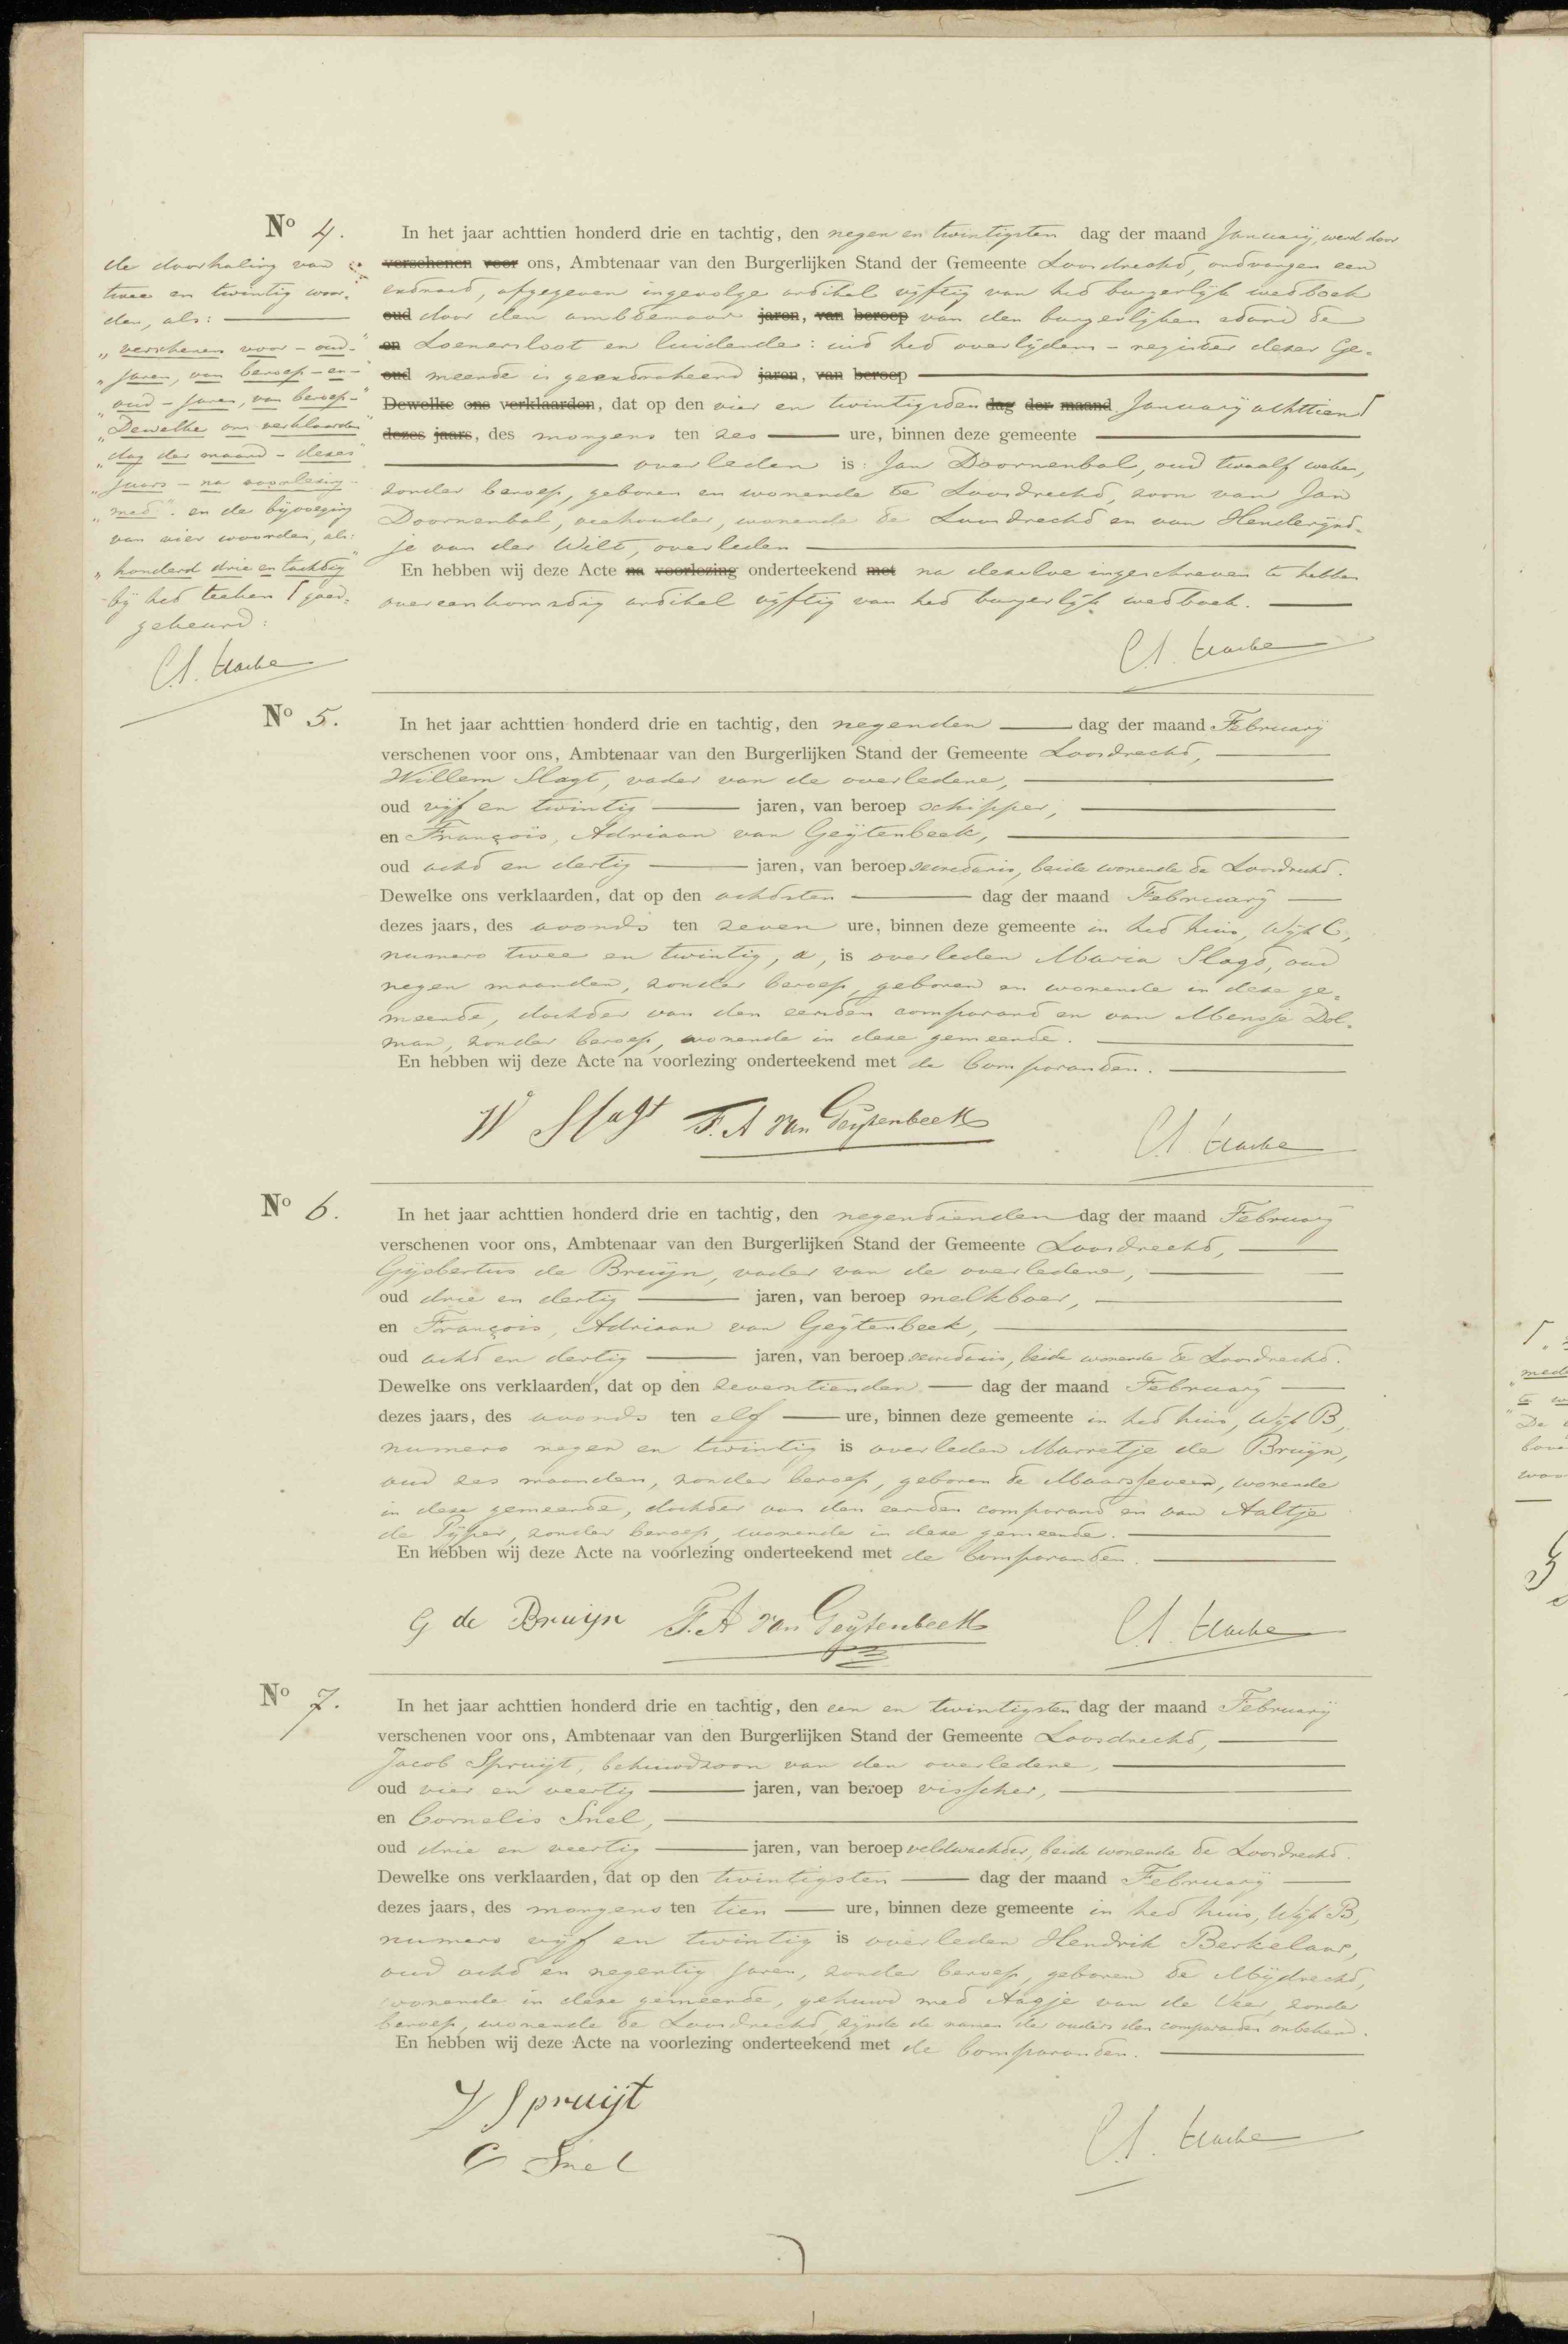 Nº 4.
In het jaar achttien honderd drie en tachtig, den negen en twintigsten dag der maand Januarij, werd door
verschenen voor ons, Ambtenaar van den Burgerlijken Stand der Gemeente Loosdrecht, ontvangen een
extract, afgegeven ingevolge artikel vijftig van het burgerlijk wetboek
oud door den ambtenaar jaren, van beroep van den burgerlijken stand te
en Loenersloot en luidende: uit het overlijdens-register dezer Ge-
oud meente is geextraheerd jaren, van beroep
Dewelke ons verklaarden, dat op den vier en twintigsten dag der maand Januarij achttien ⌈
dezes jaars, des morgens ten zes ure, binnen deze gemeente
overleden is: Jan Doornenbal, oud twaalf weken,
zonder beroep, geboren en wonende te Loosdrecht, zoon van Jan
Doornenbal, veehouder, wonende te Loosdrecht en van Henderijnt-
je van der Wilt, overleden
En hebben wij deze Acte na voorlezing onderteekend met na dezelve ingeschreven te hebben
overeenkomstig artikel vijftig van het burgerlijk wetboek.
de doorhaling van
twee en twintig woor-
den, als:
"verschenen voor - oud-"
"jaren, van beroep - en -
"oud - jaren, van beroep-"
"Dewelke ons verklaarden
"dag der maand - dezes
"jaars - na voorlezing -
"met". en de bijvoeging
van vier woorden, als:
"honderd drie en tachtig"
bij het teeken ⌈ goed-
gekeurd:
Nº 5.
In het jaar achttien honderd drie en tachtig, den negenden dag der maand Februarij
verschenen voor ons, Ambtenaar van den Burgerlijken Stand der Gemeente Loosdrecht,
Willem Slagt, vader van de overledene,
oud vijf en twintig jaren, van beroep schipper,
en François, Adriaan van Geijtenbeek,
oud acht en dertig jaren, van beroep secretaris, beide wonende te Loosdrecht.
Dewelke ons verklaarden, dat op den achtsten dag der maand Februarij
dezes jaars, des avonds ten zeven ure, binnen deze gemeente in het huis, Wijk C,
numero twee en twintig, a, is overleden Maria Slagt, oud
negen maanden, zonder beroep, geboren en wonende in deze ge-
meente, dochter van den eersten comparant en van Mensje Dol-
man, zonder beroep, wonende in deze gemeente.
En hebben wij deze Acte na voorlezing onderteekend met de Comparanten.
W Slagt F. A van Geijtenbeek
Nº 6.
In het jaar achttien honderd drie en tachtig, den negentienden dag der maand Februarij
verschenen voor ons, Ambtenaar van den Burgerlijken Stand der Gemeente Loosdrecht,
Gijsbertus de Bruijn, vader van de overledene,
oud drie en dertig jaren, van beroep melkboer,
en François, Adriaan van Geijtenbeek,
oud acht en dertig jaren, van beroep secretaris, beide wonende te Loosdrecht.
Dewelke ons verklaarden, dat op den zeventienden dag der maand Februarij
dezes jaars, des avonds ten elf ure, binnen deze gemeente in het huis, Wijk B,
numero negen en twintig is overleden Marretje de Bruijn,
oud zes maanden, zonder beroep, geboren te Maarsseveen, wonende
in deze gemeente, dochter van den eersten comparant en van Aaltje
de Pijper, zonder beroep, wonende in deze gemeente.
En hebben wij deze Acte na voorlezing onderteekend met de Comparanten.
G de Bruijn F. A van Geijtenbeek
Nº 7.
In het jaar achttien honderd drie en tachtig, den een en twintigsten dag der maand Februarij
verschenen voor ons, Ambtenaar van den Burgerlijken Stand der Gemeente Loosdrecht,
Jacob Spruijt, behuwdzoon van den overledene,
oud vier en veertig jaren, van beroep visscher,
en Cornelis Snel,
oud drie en veertig jaren, van beroep veldwachter, beide wonende te Loosdrecht.
Dewelke ons verklaarden, dat op den twintigsten dag der maand Februarij
dezes jaars, des morgens ten tien ure, binnen deze gemeente in het huis, Wijk B,
numero vijf en twintig is overleden Hendrik Berkelaar,
oud acht en negentig jaren, zonder beroep, geboren te Mijdrecht,
wonende in deze gemeente, gehuwd met Aagje van de Veer, zonder
beroep, wonende te Loosdrecht, zijnde de namen der ouders den comparanten onbekend.
En hebben wij deze Acte na voorlezing onderteekend met de Comparanten.
J Spruijt
C Snel